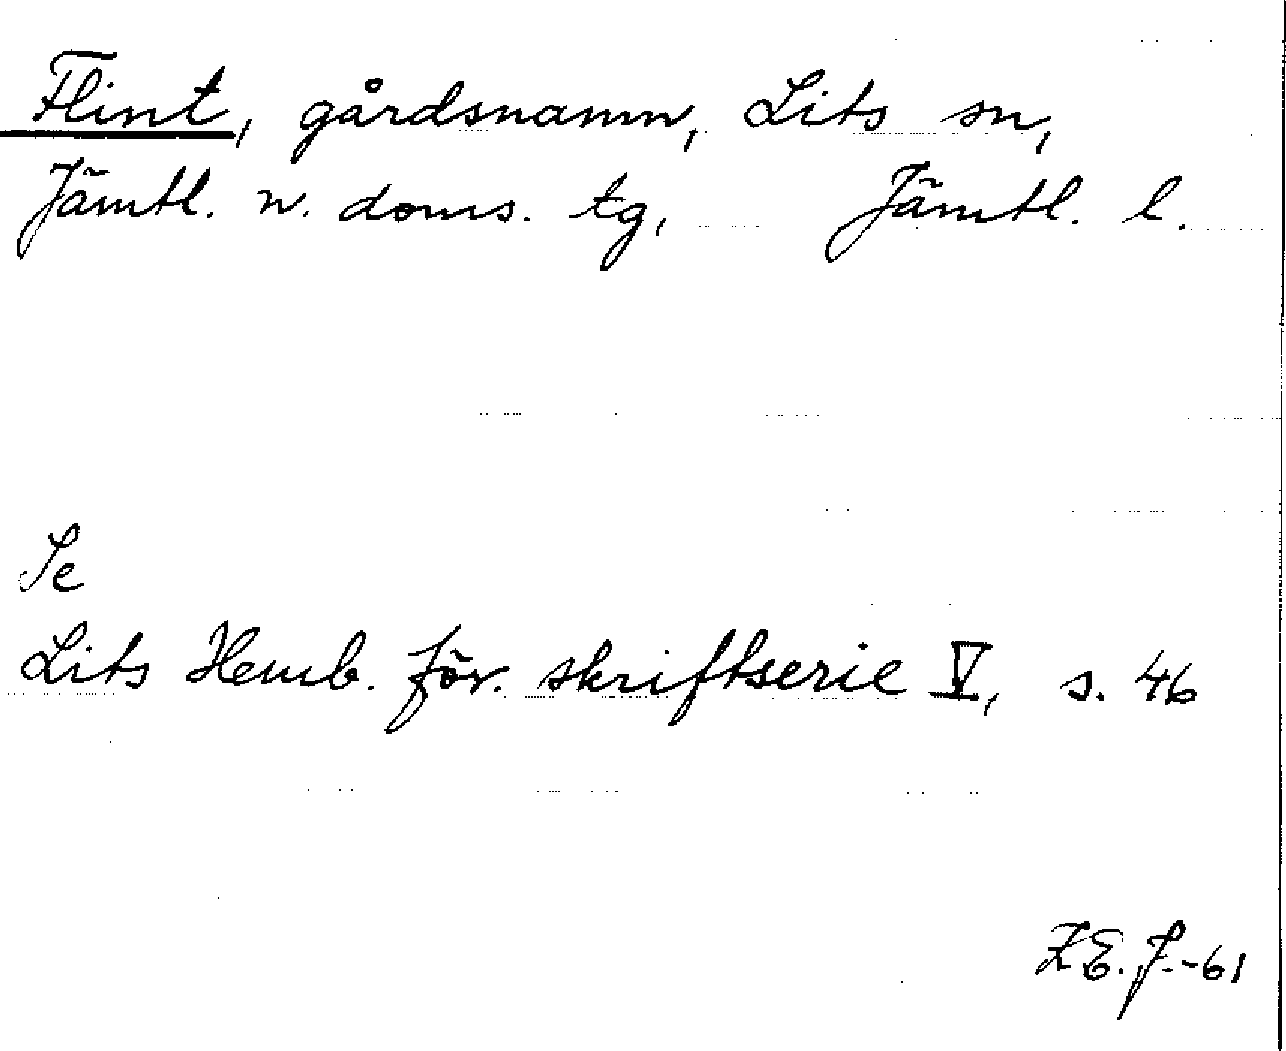 Flint, gårdsnamn, Lits sn,
Jämtl. n. doms. tg, Jämtl. l.
Se
Lits Hemb. för. skriftserie V, s. 46
Z E. J. -61